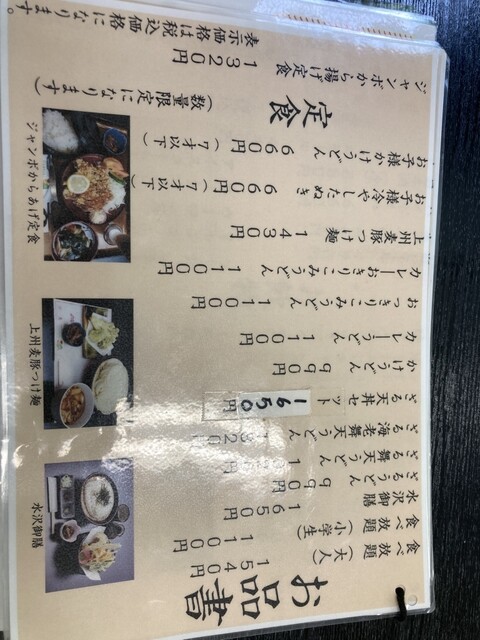 お品書
食べ放題（大人） 1540円
食べ放題（小学生） 1100円
水沢御膳 1650円
ざるうどん 990円
ざる舞天うどん
ざる海老舞天うどん 1320円
ざる天丼セット 1650円
かけうどん 990円
カレーうどん 1100円
おっきりこみうどん 1100円
カレーおきりこみうどん 1100円
上州麦豚つけ麺 1430円
お子様冷やしたぬき 660円（7才以下）
お子様かけうどん 660円（7才以下）
定食（数量限定になります）
ジャンボから揚げ定食 1320円
表示価格は税込価格になります。
水沢御膳
上州麦豚つけ麺
ジャンボからあげ定食